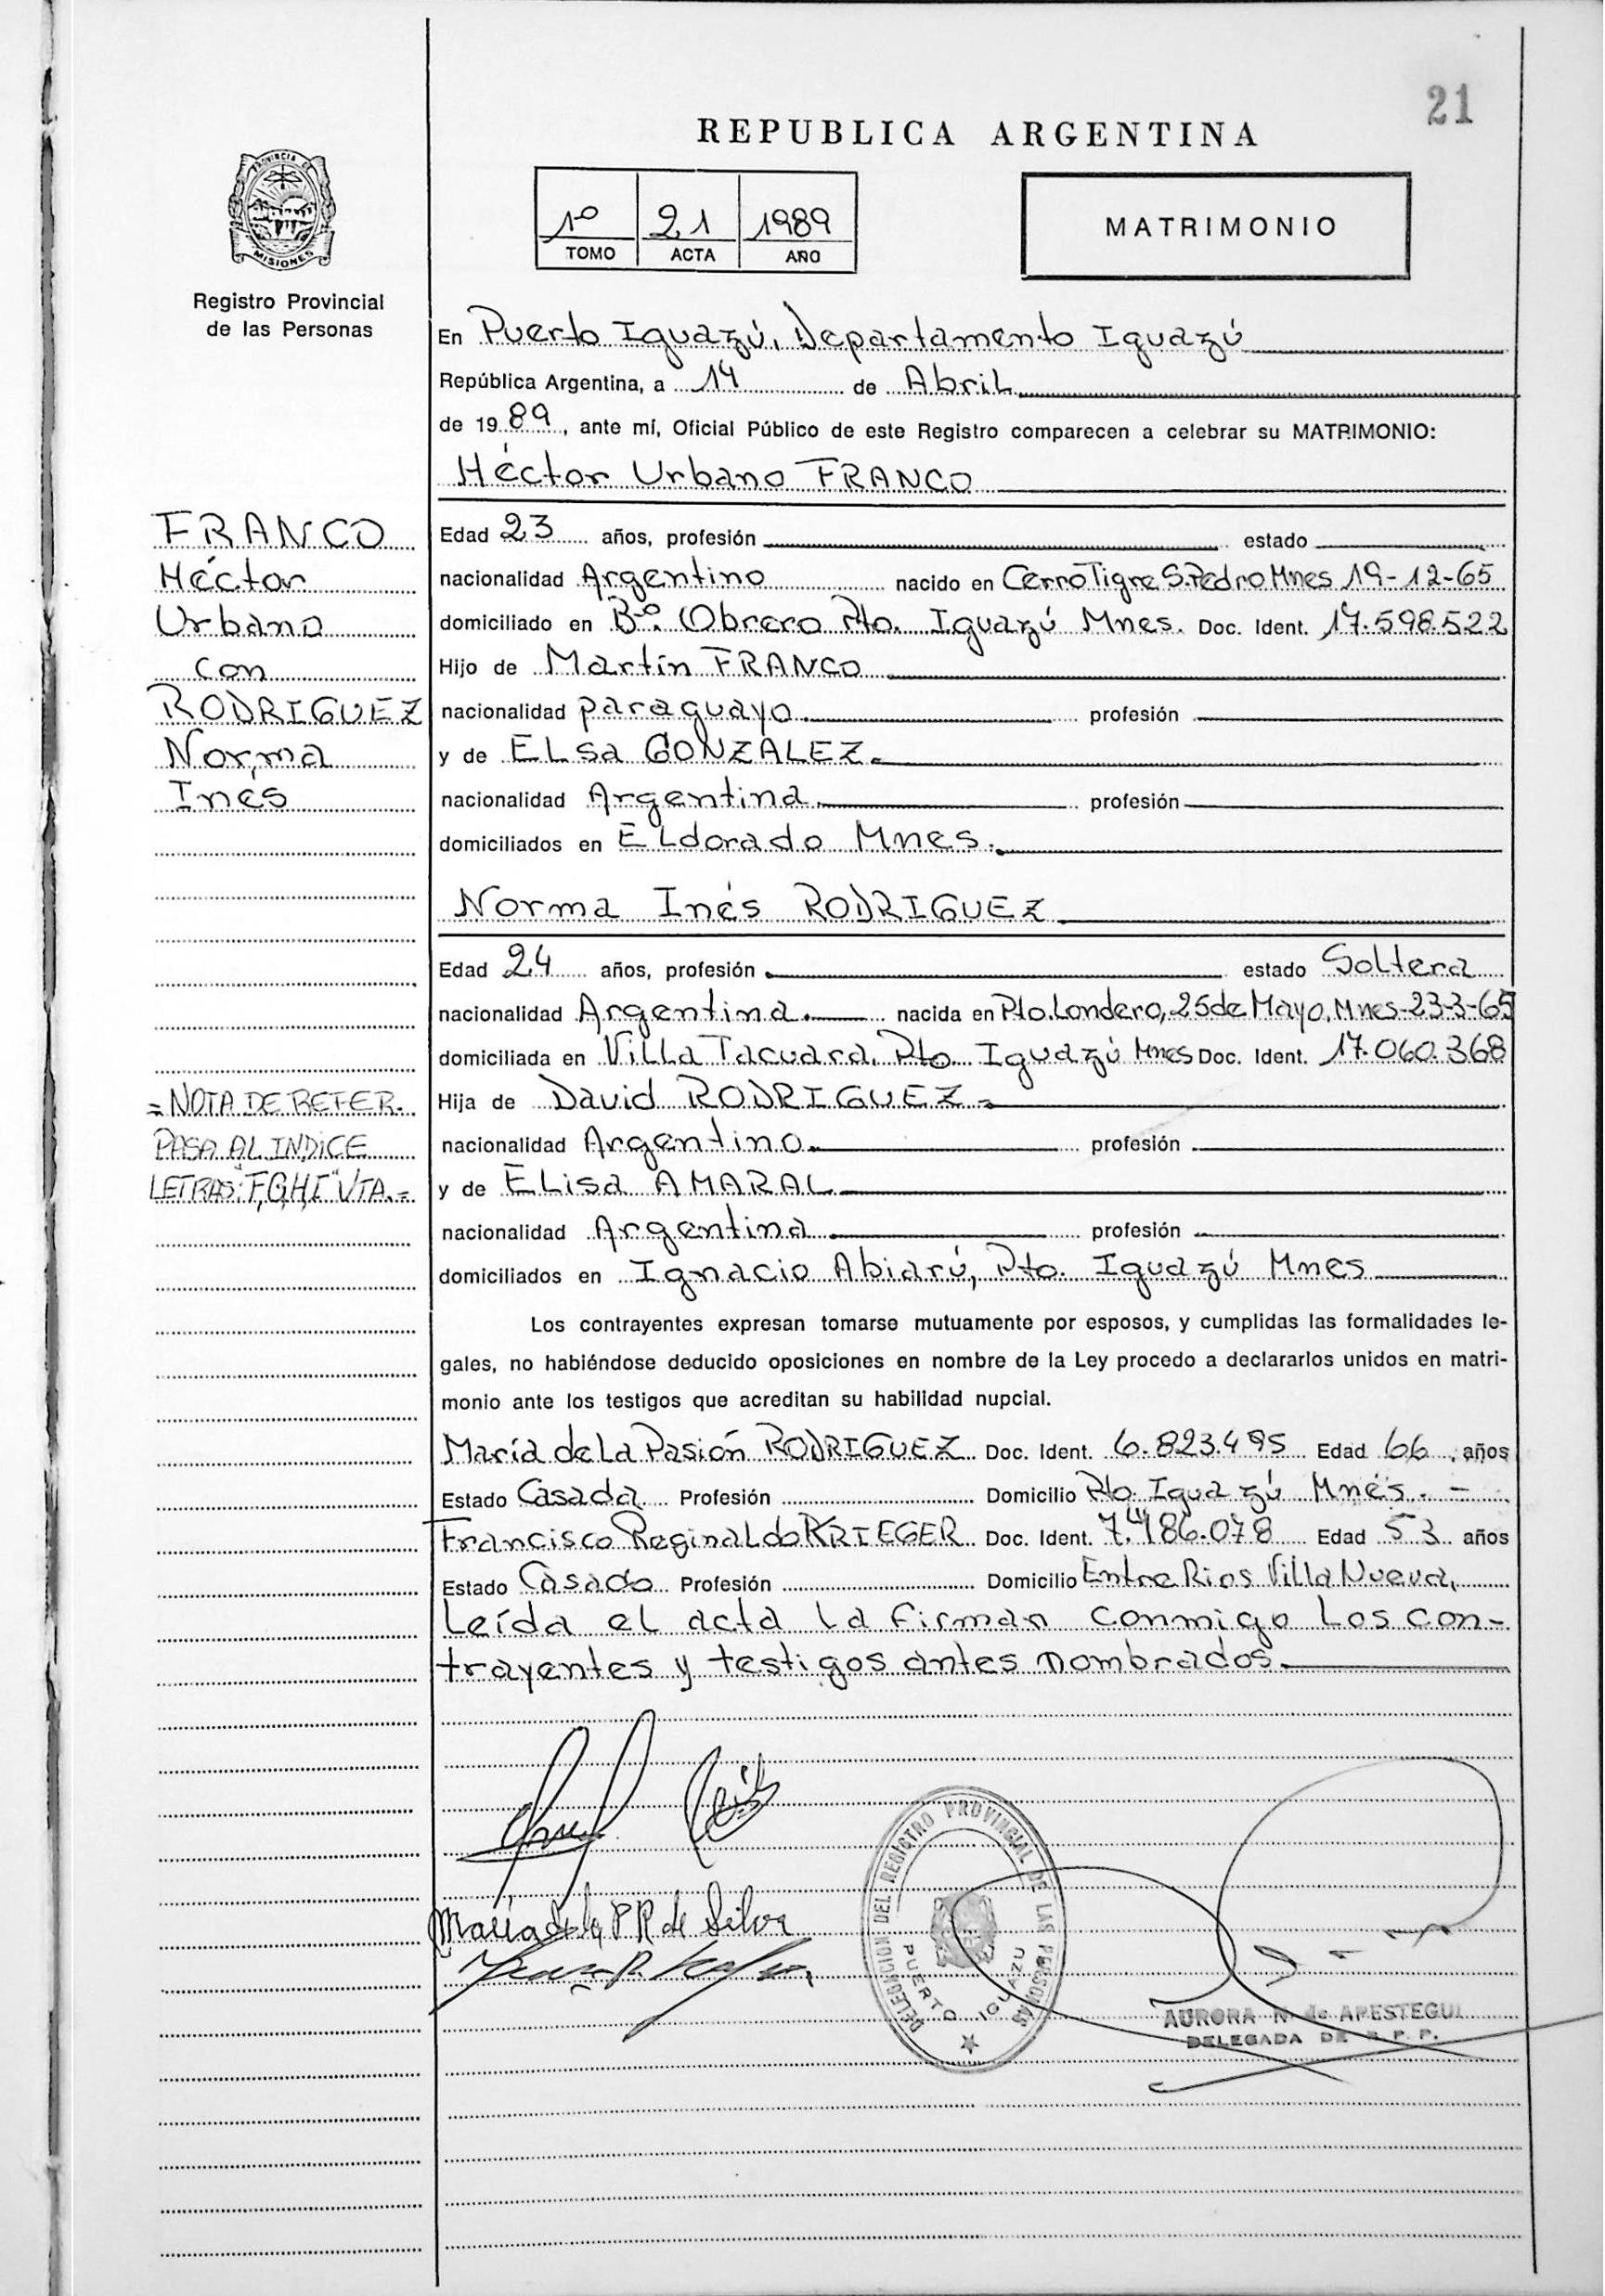 21
REPUBLICA ARGENTINA
PROVINCIA DE
MISIONES
Registro Provincial
de las Personas
1º 21 1989
TOMO ACTA AÑO
MATRIMONIO
En Puerto Iguazú, Departamento Iguazú
República Argentina, a 14 de Abril
de 1989, ante mí, Oficial Público de este Registro comparecen a celebrar su MATRIMONIO:
Héctor Urbano FRANCO
FRANCO
Héctor
Urbano
con
RODRIGUEZ
Norma
Inés
Edad 23 años, profesión estado
nacionalidad Argentino nacido en Cerro Tigre S. Pedro Mnes 19-12-65
domiciliado en Bº. Obrero Pto. Iguazú Mnes. Doc. Ident. 17.598.522
Hijo de Martín FRANCO
nacionalidad paraguayo. profesión
y de Elsa GONZALEZ.
nacionalidad Argentina. profesión
domiciliados en Eldorado Mnes.
Norma Inés RODRIGUEZ
Edad 24 años, profesión estado Soltera
nacionalidad Argentina. nacida en Pto. Londero, 25 de Mayo, Mnes-23-3-65
domiciliada en Villa Tacuara. Pto. Iguazú Mnes Doc. Ident. 17.060.368
Hija de David RODRIGUEZ.
nacionalidad Argentino. profesión
y de Elisa AMARAL
nacionalidad Argentina. profesión
domiciliados en Ignacio Abiarú, Pto. Iguazú Mnes
=NOTA DE REFER.
PASA AL INDICE
LETRAS: "F,G,H,I" VTA.=
Los contrayentes expresan tomarse mutuamente por esposos, y cumplidas las formalidades le-
gales, no habiéndose deducido oposiciones en nombre de la Ley procedo a declararlos unidos en matri-
monio ante los testigos que acreditan su habilidad nupcial.
María de La Pasión RODRIGUEZ Doc. Ident. 6.823.495 Edad 66 años
Estado Casada Profesión Domicilio Pto. Iguazú Mnes. -
Francisco Reginaldo KRIEGER Doc. Ident. 7.486.078 Edad 53 años
Estado Casado Profesión Domicilio Entre Rios Villa Nueva,
Leída el acta la firman conmigo los con-
trayentes y testigos antes nombrados.
María de la P R de Silva
DELEGACION DEL REGISTRO PROVINCIAL DE LAS PERSONAS
PUERTO IGUAZU
AURORA N. de APESTEGUI
DELEGADA DE R. P. P.